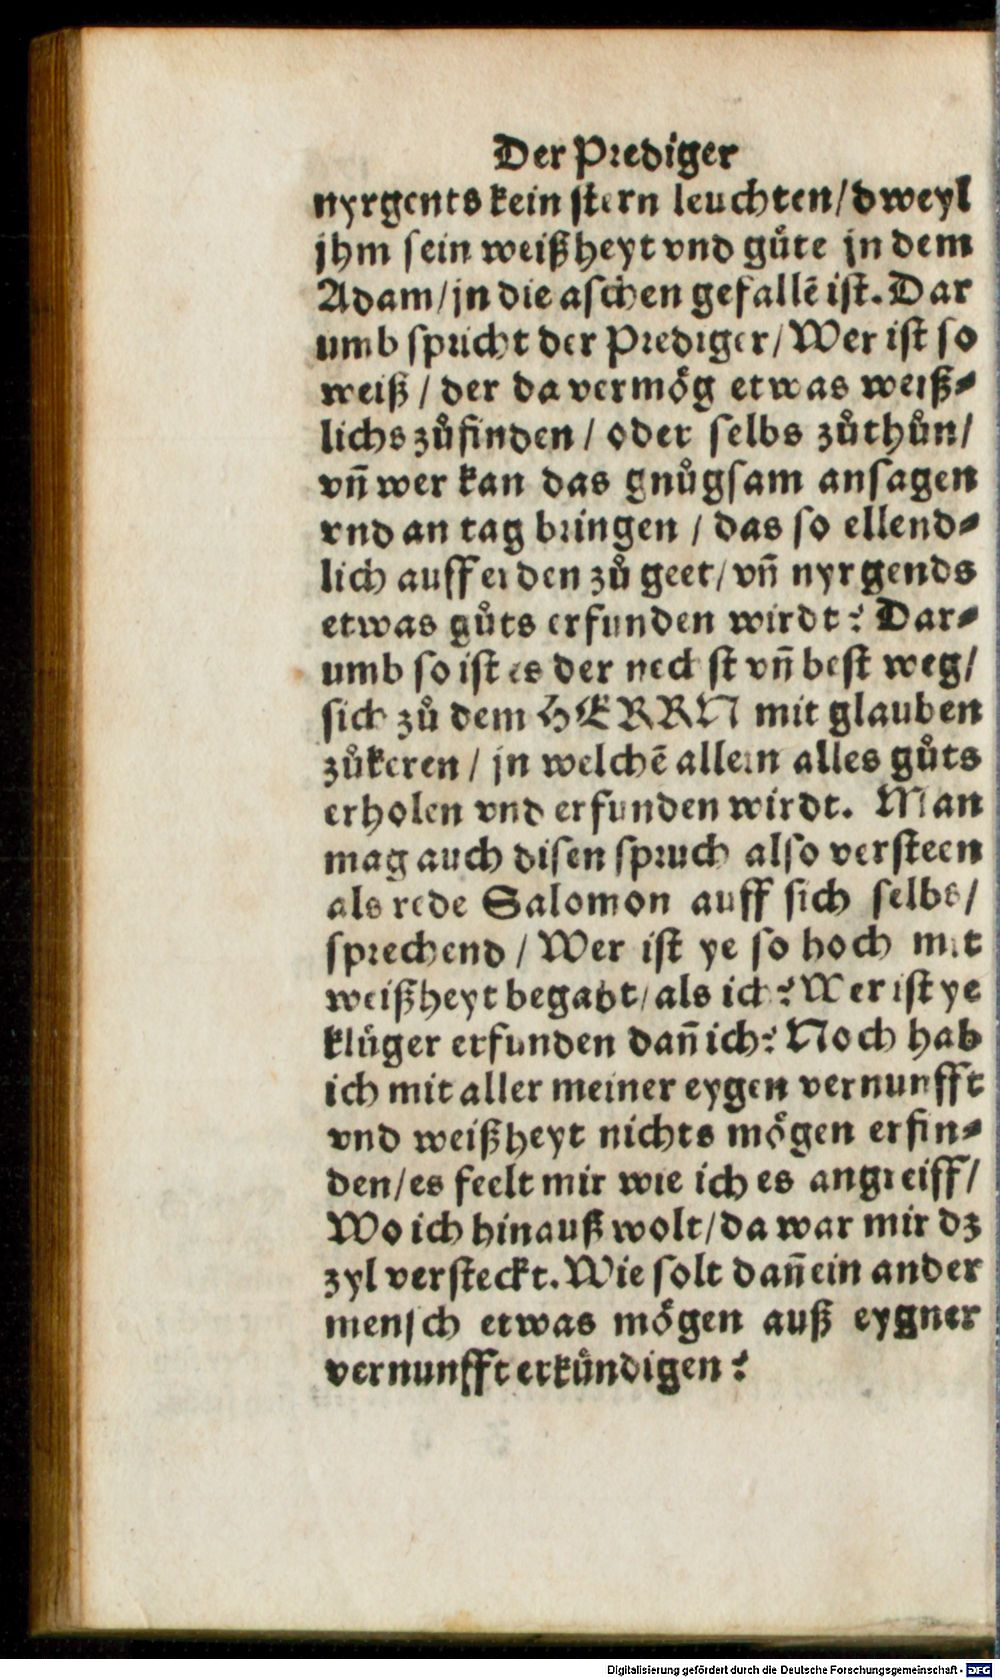 Der Prediger
nyrgents kein stern leuchten/dweyl
jhm sein weißheyt vnd guͤte jn dem
Adam/jn die aschen gefallē ist. Dar
umb spricht der Prediger/Wer ist so
weiß / der da vermoͤg etwas weiß⸗
lichs zuͦfinden / oder selbs zuͦthuͦn/
vñ wer kan das gnuͦgsam ansagen
vnd an tag bringen / das so ellend⸗
lich auff erden zuͦ geet/vñ nyrgends
etwas guͦts erfunden wirdt? Dar⸗
umb so ist es der nechst vñ best weg/
sich zuͦ dem HERRN mit glauben
zuͦkeren / jn welchē allein alles guͦts
erholen vnd erfunden wirdt. Man
mag auch disen spruch also versteen
als rede Salomon auff sich selbs/
sprechend / Wer ist ye so hoch mit
weißheyt begabt/als ich? Wer ist ye
kluͤger erfunden dañ ich? Noch hab
ich mit aller meiner eygen vernunfft
vnd weißheyt nichts moͤgen erfin⸗
den/es feelt mir wie ich es angreiff/
Wo ich hinauß wolt/da war mir dz
zyl versteckt. Wie solt dañ ein ander
mensch etwas moͤgen auß eygner
vernunfft erkuͤndigen?
Digitalisierung gefördert durch die Deutsche Forschungsgemeinschaft - DFG